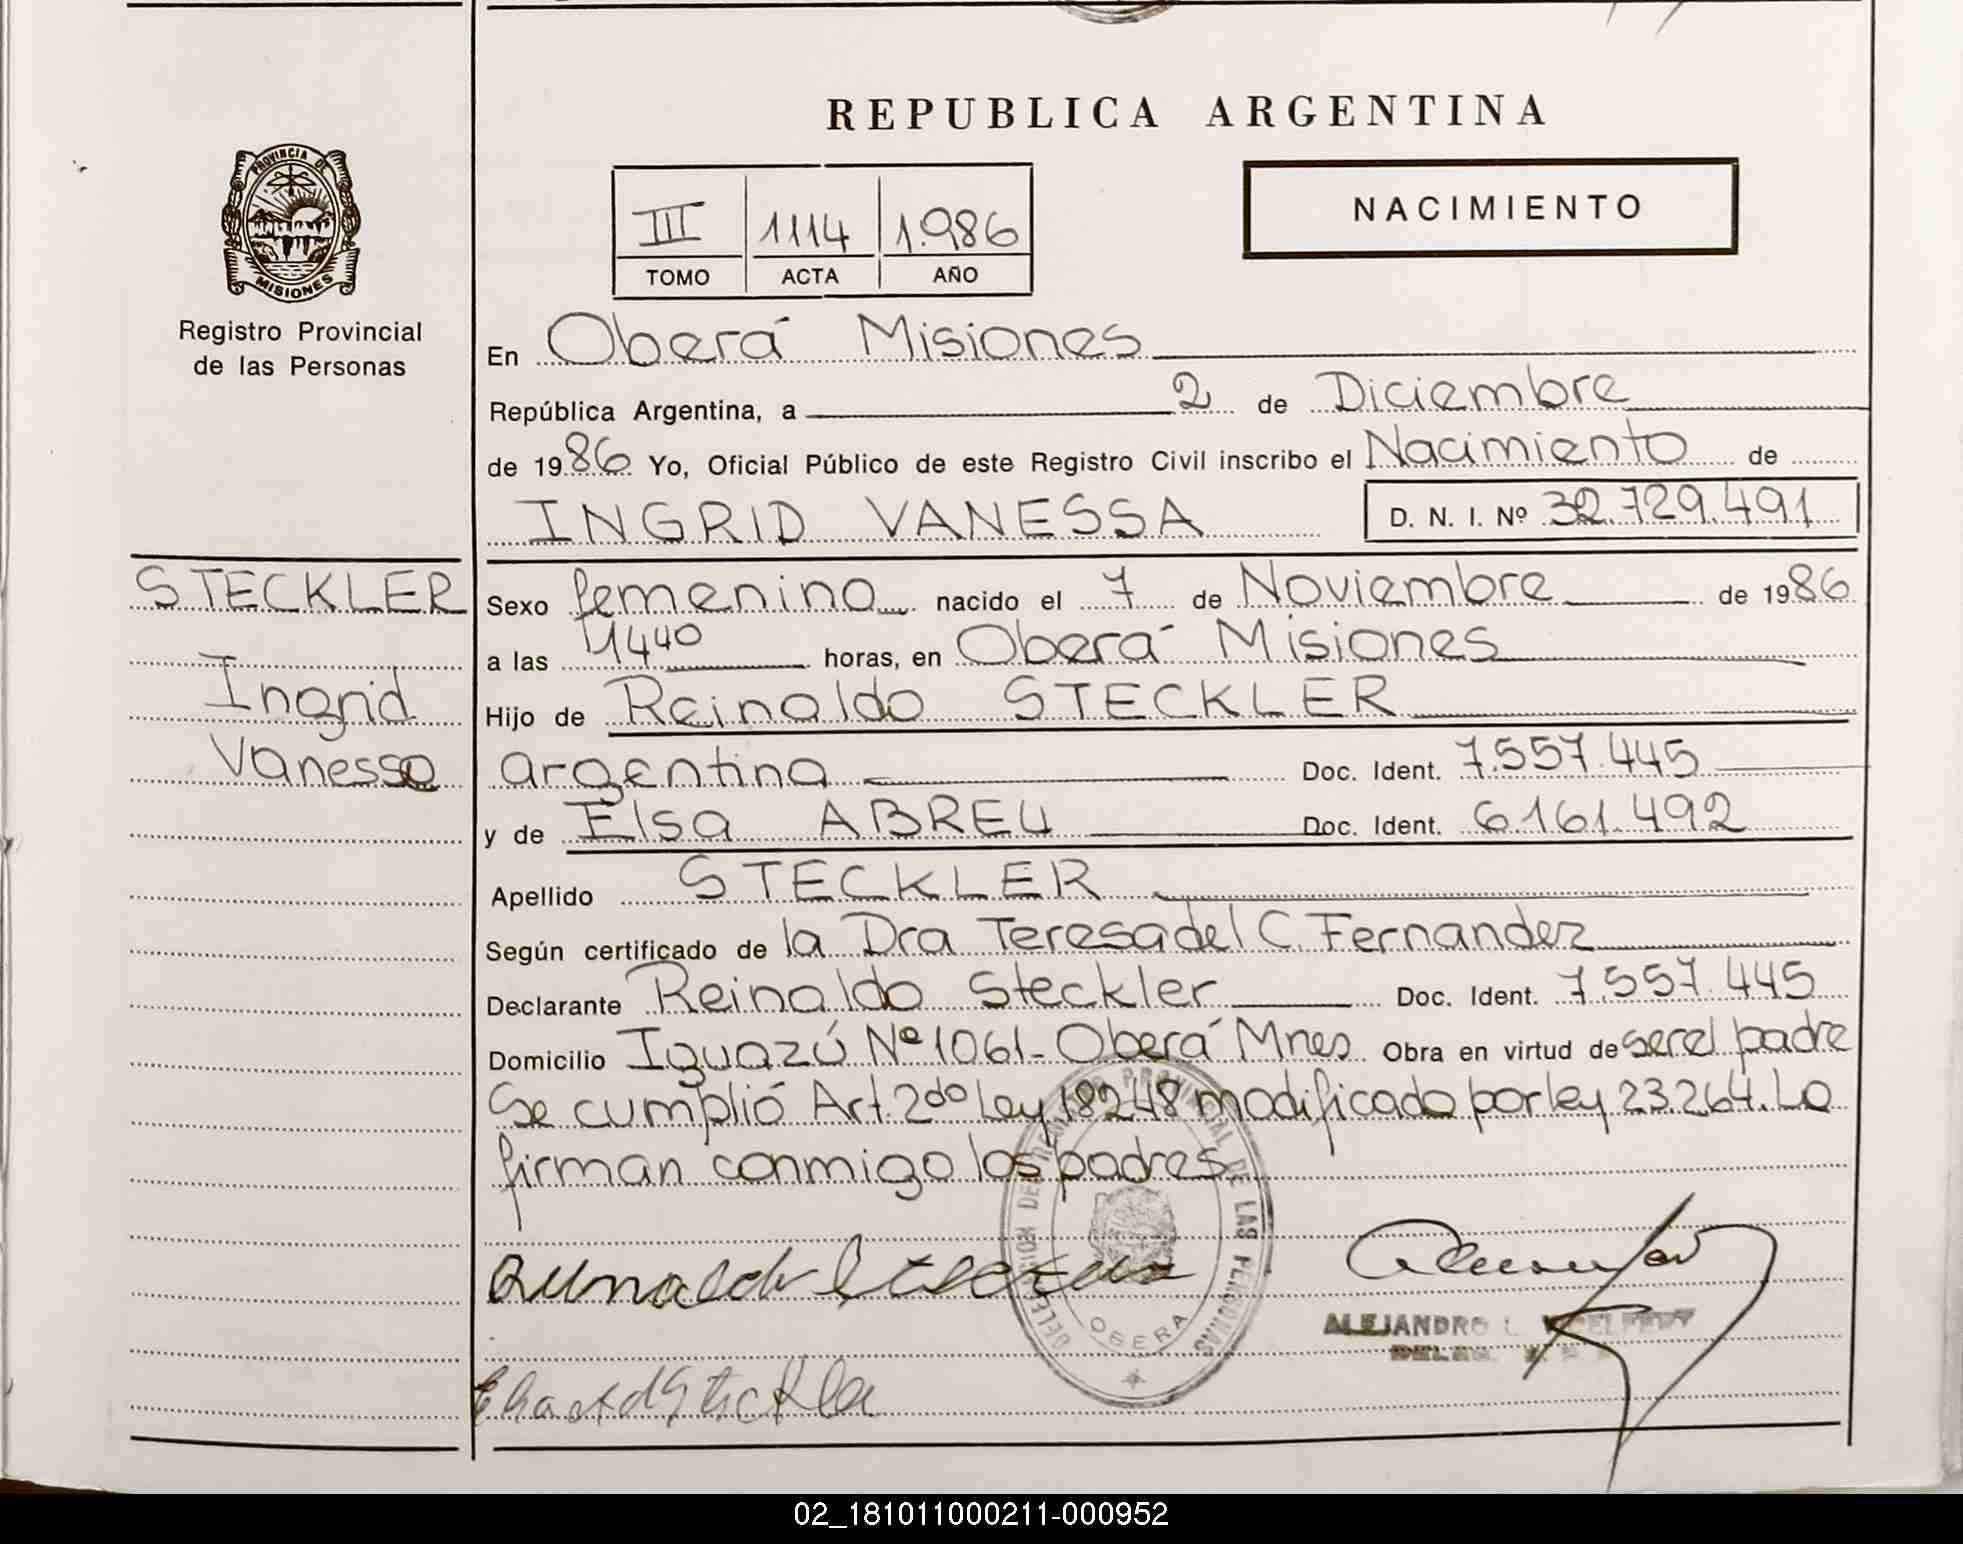 REPUBLICA ARGENTINA
PROVINCIA DE MISIONES
Registro Provincial
de las Personas
NACIMIENTO
III 1114 1.986
TOMO ACTA AÑO
En Oberá Misiones
República Argentina, a 2 de Diciembre
de 1986 Yo, Oficial Público de este Registro Civil inscribo el Nacimiento de
INGRID VANESSA D. N. I. Nº 32.729.491
STECKLER
Ingrid
Vanessa
Sexo femenino nacido el 7 de Noviembre de 1986
a las 1440 horas, en Oberá Misiones
Hijo de Reinaldo STECKLER
argentina Doc. Ident. 7.557.445
y de Elsa ABREU Doc. Ident. 6.161.492
Apellido STECKLER
Según certificado de la Dra Teresa del C. Fernandez
Declarante Reinaldo Steckler Doc. Ident. 7.557.445
Domicilio Iguazú Nº 1061- Oberá Mnes Obra en virtud de ser el padre
Se cumplió Art. 2do Ley 18248 modificado por ley 23.264. Lo
firman conmigo los padres
DELEGACION DEL REGISTRO PROVINCIAL DE LAS PERSONAS
OBERA
ALEJANDRO L.
02_181011000211-000952